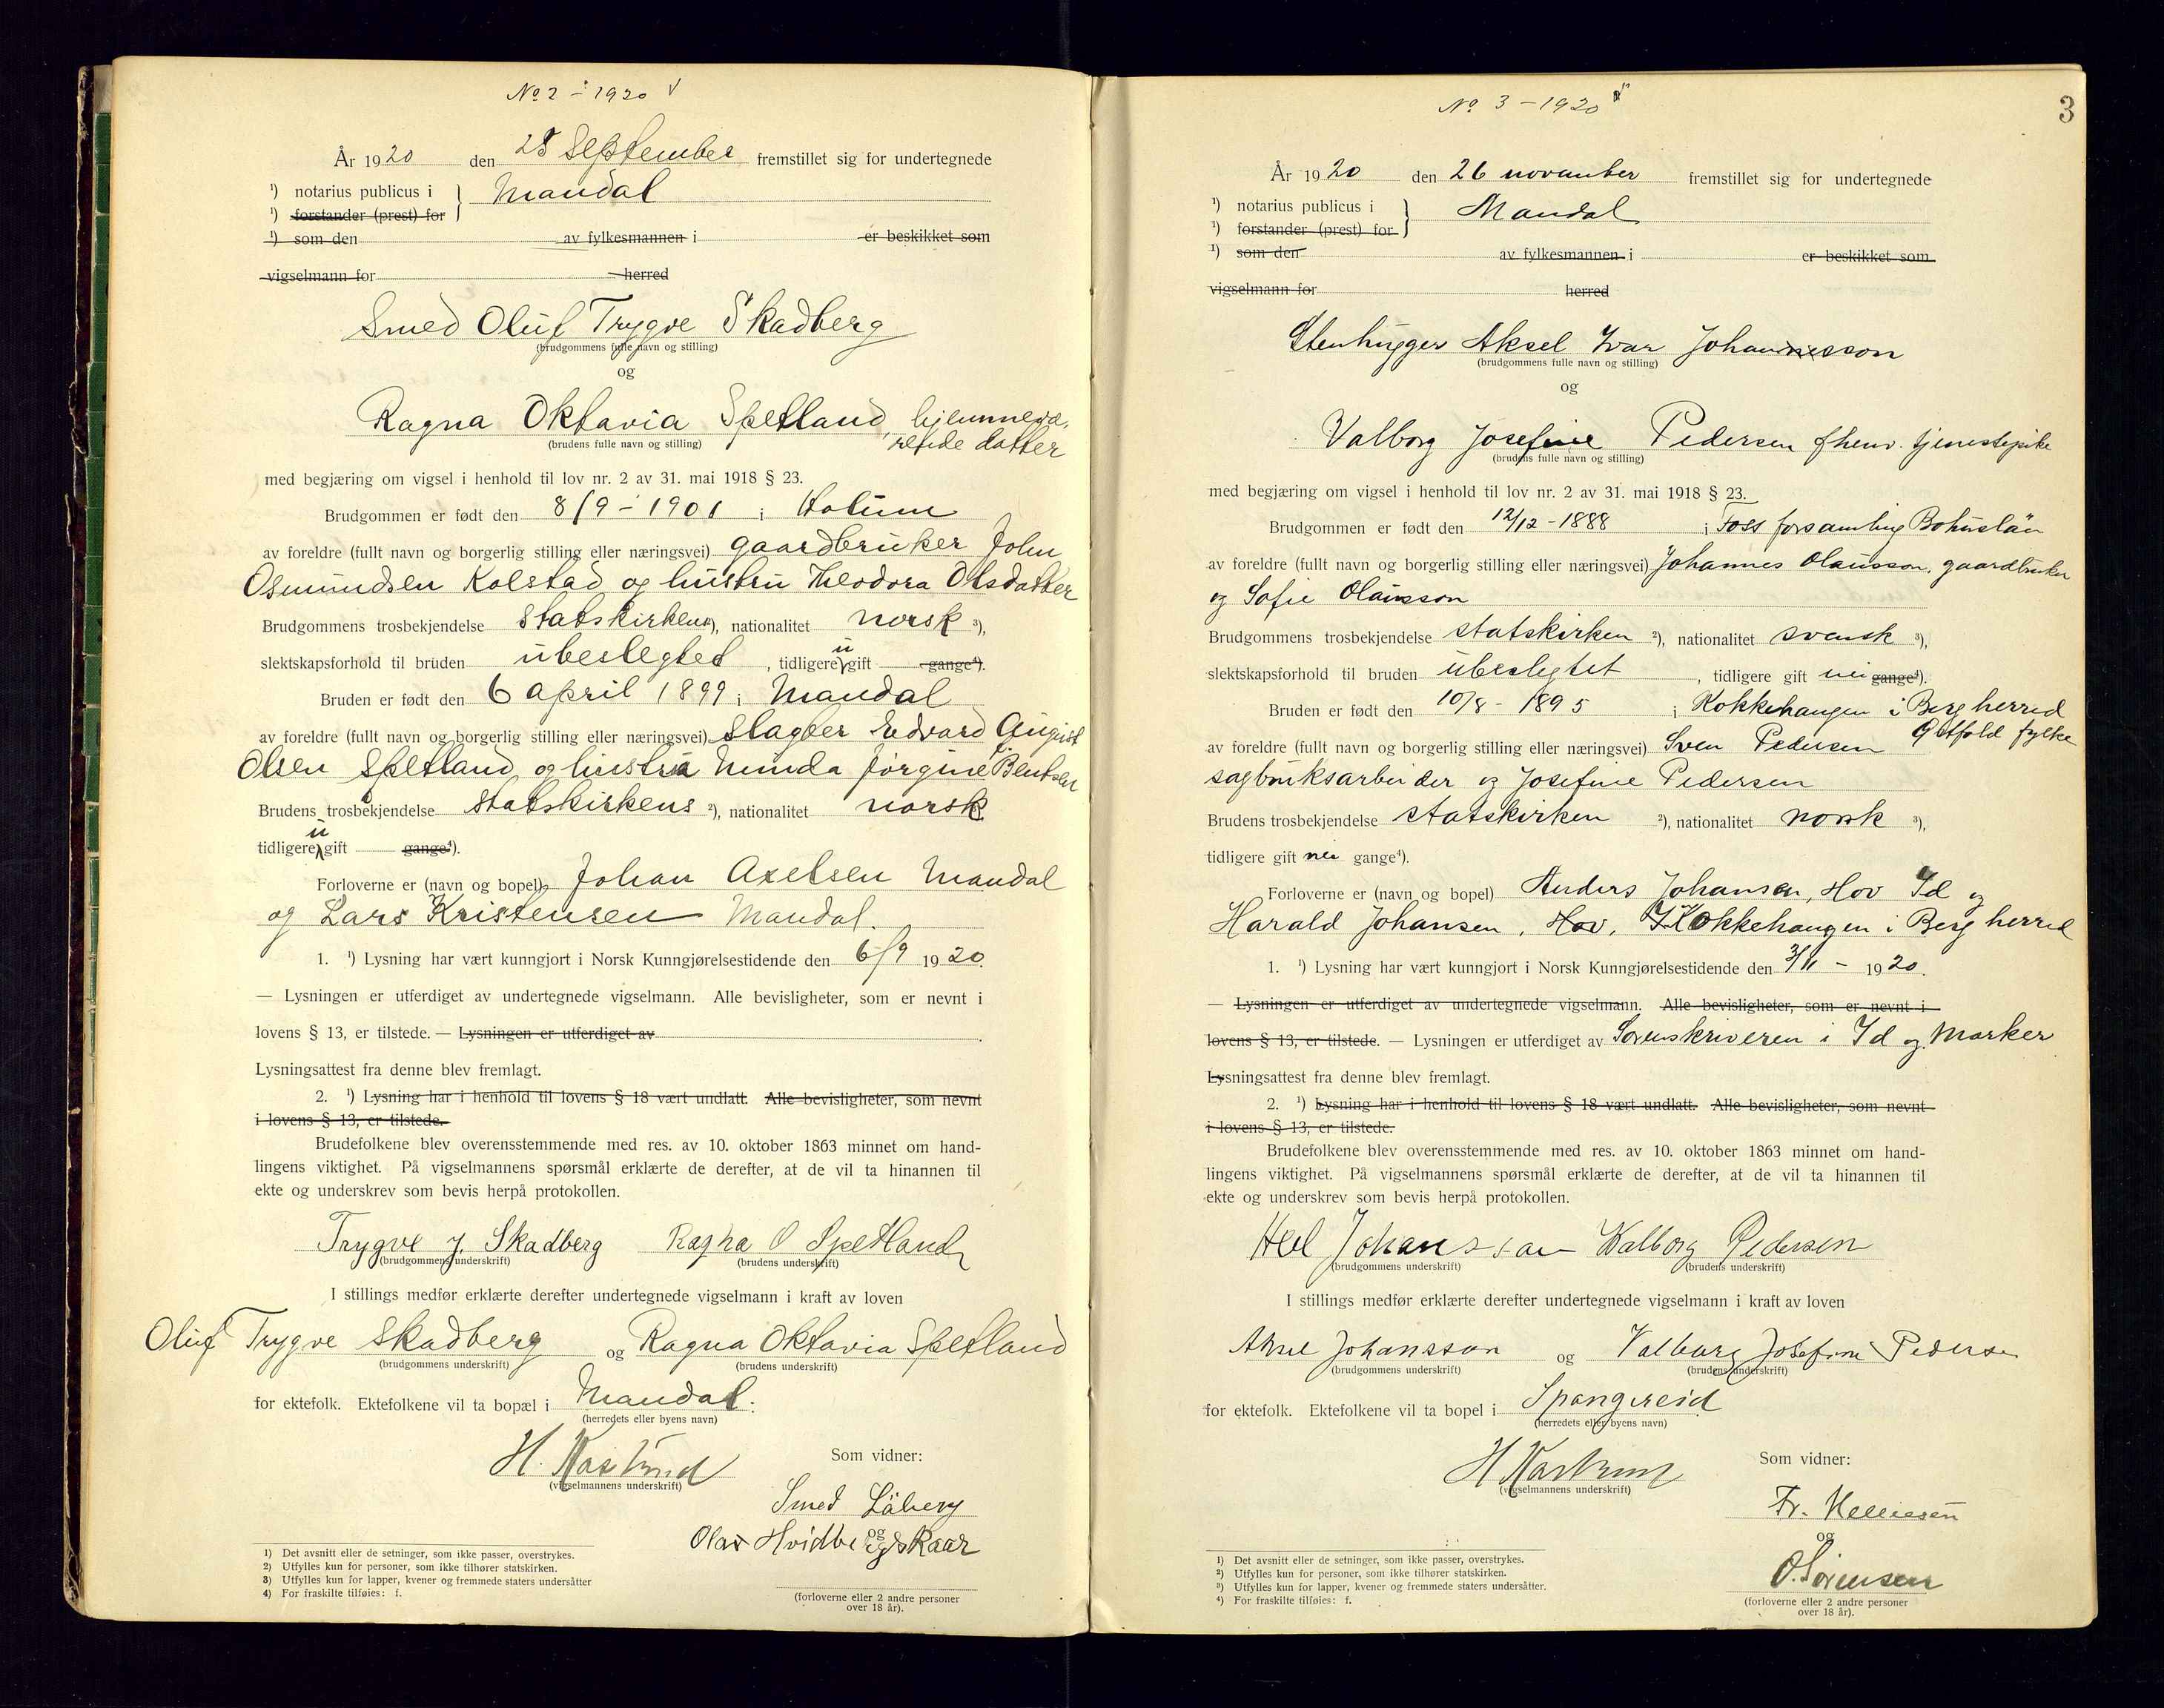 No 2 - 1920 V
År 1920 den 28 September fremstillet sig for undertegnede
1) notarius publicus i } Mandal
1) forstander (prest) for
1) som den av fylkesmannen i er beskikket som
vigselmann for herred
Smed Oluf Trygve Skadberg
(brudgommens fulle navn og stilling)
og
Ragna Oktavia Spetland, hjemmevæ,
rende datter
(brudens fulle navn og stilling)
med begjæring om vigsel i henhold til lov nr. 2 av 31. mai 1918 § 23.
Brudgommen er født den 8/9 - 1901 i Holum
av foreldre (fullt navn og borgerlig stilling eller næringsvei) gaardbruker John
Osmundsen Kolstad og hustru Theodora Olsdatter
Brudgommens trosbekjendelse statskirkens 2), nationalitet norsk 3),
slektskapsforhold til bruden ubeslegtet, tidligere u gift gange4).
Bruden er født den 6 april 1899 i Mandal
av foreldre (fullt navn og borgerlig stilling eller næringsvei) Slagter Edvard August
Olsen Spetland og hustru Minda Jørgine Bentsen
Brudens trosbekjendelse statskirkens 2), nationalitet norsk
tidligere u gift gange4).
Forloverne er (navn og bopel) Johan Axelsen Mandal
og Lars Kristensen Mandal.
1. 1) Lysning har vært kunngjort i Norsk Kunngjørelsestidende den 6/9 1920.
— Lysningen er utferdiget av undertegnede vigselmann. Alle bevisligheter, som er nevnt i
lovens § 13, er tilstede. — Lysningen er utferdiget av .
Lysningsattest fra denne blev fremlagt.
2. 1) Lysning har i henhold til lovens § 18 vært undlatt. Alle bevisligheter, som nevnt
i lovens § 13, er tilstede.
Brudefolkene blev overensstemmende med res. av 10. oktober 1863 minnet om hand-
lingens viktighet. På vigselmannens spørsmål erklærte de derefter, at de vil ta hinannen til
ekte og underskrev som bevis herpå protokollen.
Trygve J. Skadberg Ragna O Spetland
(brudgommens underskrift) (brudens underskrift)
I stillings medfør erklærte derefter undertegnede vigselmann i kraft av loven
Oluf Trygve Skadberg og Ragna Oktavia Spetland
(brudgommens underskrift) (brudens underskrift)
for ektefolk. Ektefolkene vil ta bopæl i Mandal.
(herredets eller byens navn)
H. Kastrud
(vigselmannens underskrift)
Som vidner:
Smed Låberg
og
Olav Hvidbergskaar
(forloverne eller 2 andre personer
over 18 år).
1) Det avsnitt eller de setninger, som ikke passer, overstrykes.
2) Utfylles kun for personer, som ikke tilhører statskirken.
3) Utfylles kun for lapper, kvener og fremmede staters undersåtter
4) For fraskilte tilføies: f.
3
No 3 - 1920
År 1920 den 26 november fremstillet sig for undertegnede
1) notarius publicus i } Mandal
1) forstander (prest) for
1) som den av fylkesmannen i er beskikket som
vigselmann for herred
Stenhugger Aksel Ivar Johannesson
(brudgommens fulle navn og stilling)
og
Valborg Josefine Pedersen fhenv. tjenestepike
(brudens fulle navn og stilling)
med begjæring om vigsel i henhold til lov nr. 2 av 31. mai 1918 § 23.
Brudgommen er født den 12/12 - 1888 i Foss forsamling Bohuslän
av foreldre (fullt navn og borgerlig stilling eller næringsvei) Johannes Olausson, gaardbruker
og Sofie Olausson
Brudgommens trosbekjendelse statskirken 2), nationalitet svensk 3),
slektskapsforhold til bruden ubeslegtet, tidligere gift nei gange4).
Bruden er født den 10/8 - 1895 i Kokkehaugen i Berg herred
Østfold fylke
av foreldre (fullt navn og borgerlig stilling eller næringsvei) Sven Pedersen
sagbruksarbeider og Josefine Pedersen
Brudens trosbekjendelse statskirken 2), nationalitet norsk 3),
tidligere gift nei gange4).
Forloverne er (navn og bopel) Anders Johansen, Hov Id og
Harald Johansen, Hov, Kokkehaugen i Berg herred
1. 1) Lysning har vært kunngjort i Norsk Kunngjørelsestidende den 3/11 - 1920.
— Lysningen er utferdiget av undertegnede vigselmann. Alle bevisligheter, som er nevnt i
lovens § 13, er tilstede. — Lysningen er utferdiget av Sorenskriveren i Id og Marker
Lysningsattest fra denne blev fremlagt.
2. 1) Lysning har i henhold til lovens § 18 vært undlatt. Alle bevisligheter, som nevnt
i lovens § 13, er tilstede.
Brudefolkene blev overensstemmende med res. av 10. oktober 1863 minnet om hand-
lingens viktighet. På vigselmannens spørsmål erklærte de derefter, at de vil ta hinannen til
ekte og underskrev som bevis herpå protokollen.
Johansson Valborg Pedersen
(brudgommens underskrift) (brudens underskrift)
I stillings medfør erklærte derefter undertegnede vigselmann i kraft av loven
Johansson og Valborg Josefine Pedersen
(brudgommens underskrift) (brudens underskrift)
for ektefolk. Ektefolkene vil ta bopel i Spangereid
(herredets eller byens navn)
H Kastrud
(vigselmannens underskrift)
Som vidner:
Fr. Hellesen
og
O. Sørensen
(forloverne eller 2 andre personer
over 18 år).
1) Det avsnitt eller de setninger, som ikke passer, overstrykes.
2) Utfylles kun for personer, som ikke tilhører statskirken.
3) Utfylles kun for lapper, kvener og fremmede staters undersåtter.
4) For fraskilte tilføies: f.